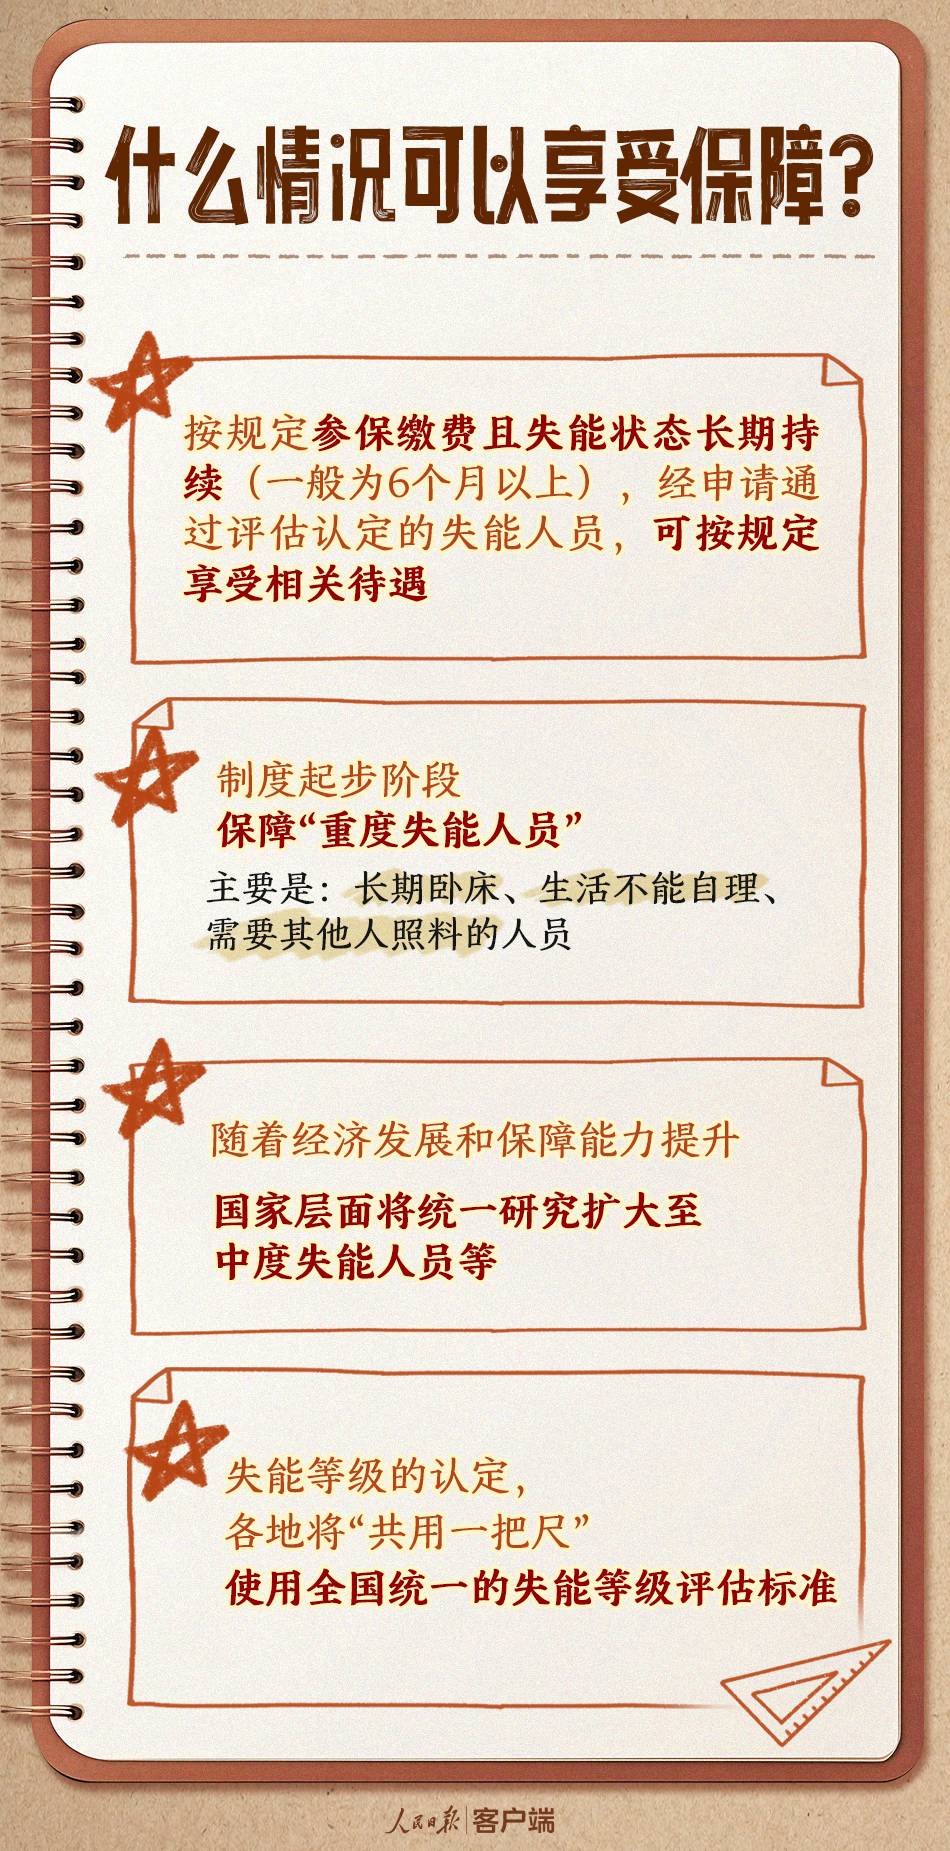 什么情况可以享受保障?
按规定参保缴费且失能状态长期持
续（一般为6个月以上），经申请通
过评估认定的失能人员，可按规定
享受相关待遇
制度起步阶段
保障“重度失能人员”
主要是：长期卧床、生活不能自理、
需要其他人照料的人员
随着经济发展和保障能力提升
国家层面将统一研究扩大至
中度失能人员等
失能等级的认定，
各地将“共用一把尺”
使用全国统一的失能等级评估标准
人民日报|客户端